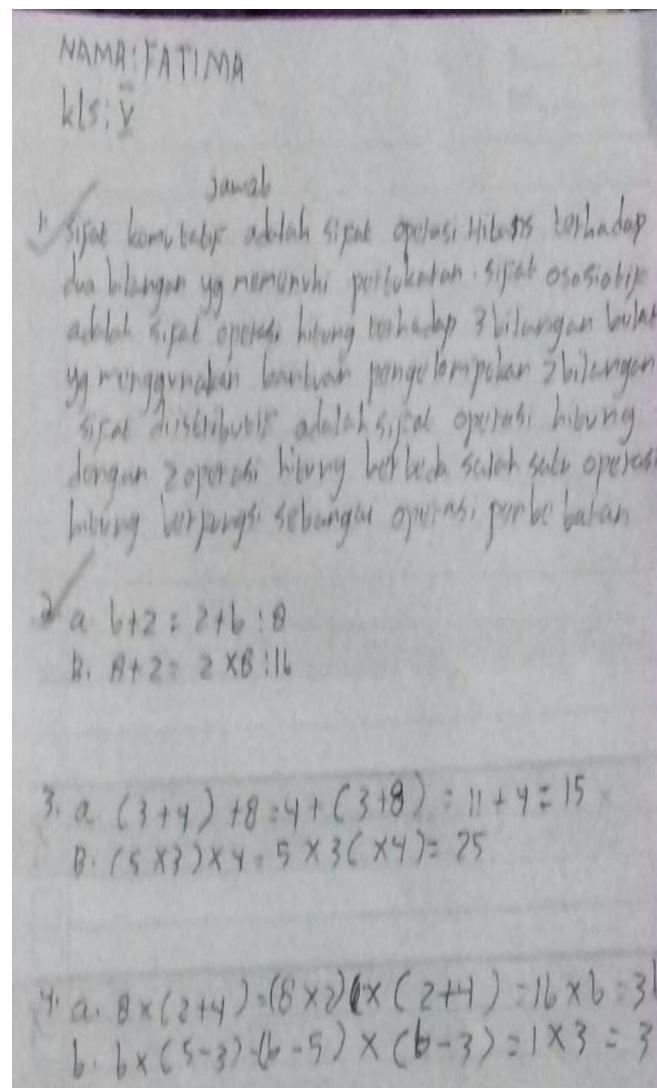 NAMA: FATIMA
kls: V
Jawab
1. Sifat komutatif adalah sifat operasi Hitung terhadap
dua bilangan yg memenuhi pertukaran. sifat ososiotif
adalah sifat operasi hitung terhadap 3 bilangan bulat
yg menggunakan bantuan pengelompokan 2 bilangan
sifat distributif adalah sifat operasi hitung
dengan 2 operasi hitung berbeda salah satu operasi
hitung berpungsi sebangai operasi
2 a. 6+2 = 2+6 : 8
B. 8+2 = 2 X8 : 16
3. a. (3+4) +8 = 4 + (3+8) = 11 + 4 = 15
B. (5 X3) X 4 = 5 X 3( X4) = 25
4. a. 8 x (2+4) = (8 x 2) x (2+4) = 16 x 6 = 3
b. 6 x (5-3) = (6-5) x (6-3) = 1 x 3 = 3